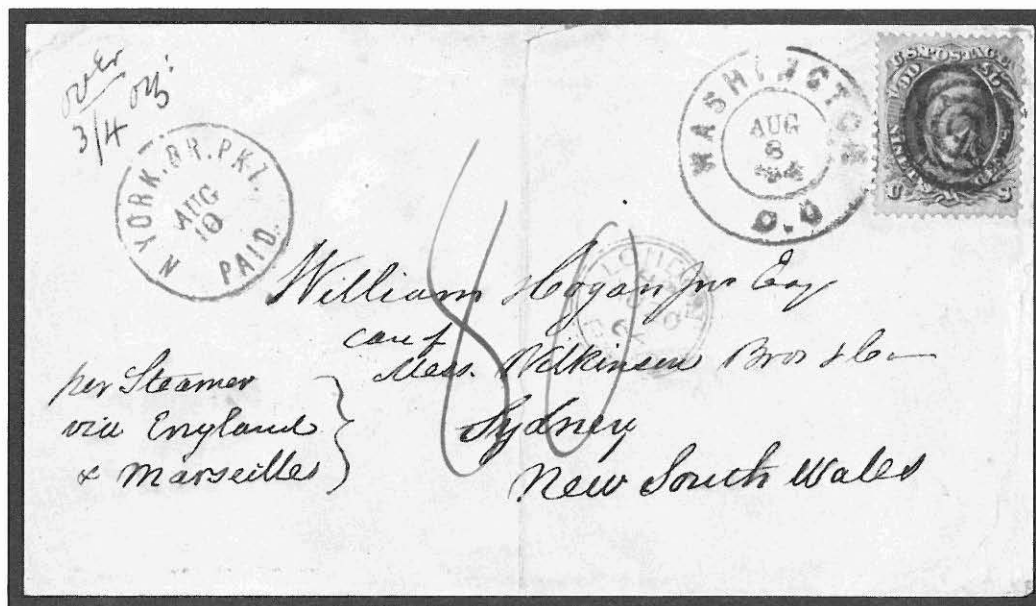 over
3/4 oz:
N YORK. BR. PKT.
AUG
10
PAID.
WASHINGTON
AUG
8
D.C
U.S. POSTAGE
U S
80
William Hogan Jnr Esq
care of
Mess. Wilkinson Bros & Co
Sydney
New South Wales
per Steamer
via England
& Marseilles